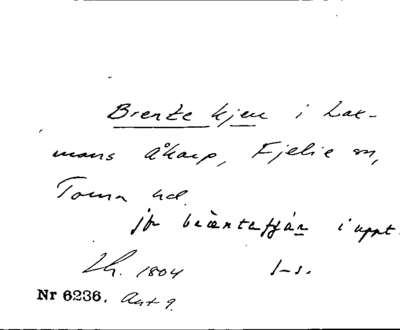 Brente kjen i Lac-
mans Åkarp, Fjelie sn,
Torna hd.
jfr i uppt.
Lh. 1804 I-s.
Nr 6236. Ant 9.